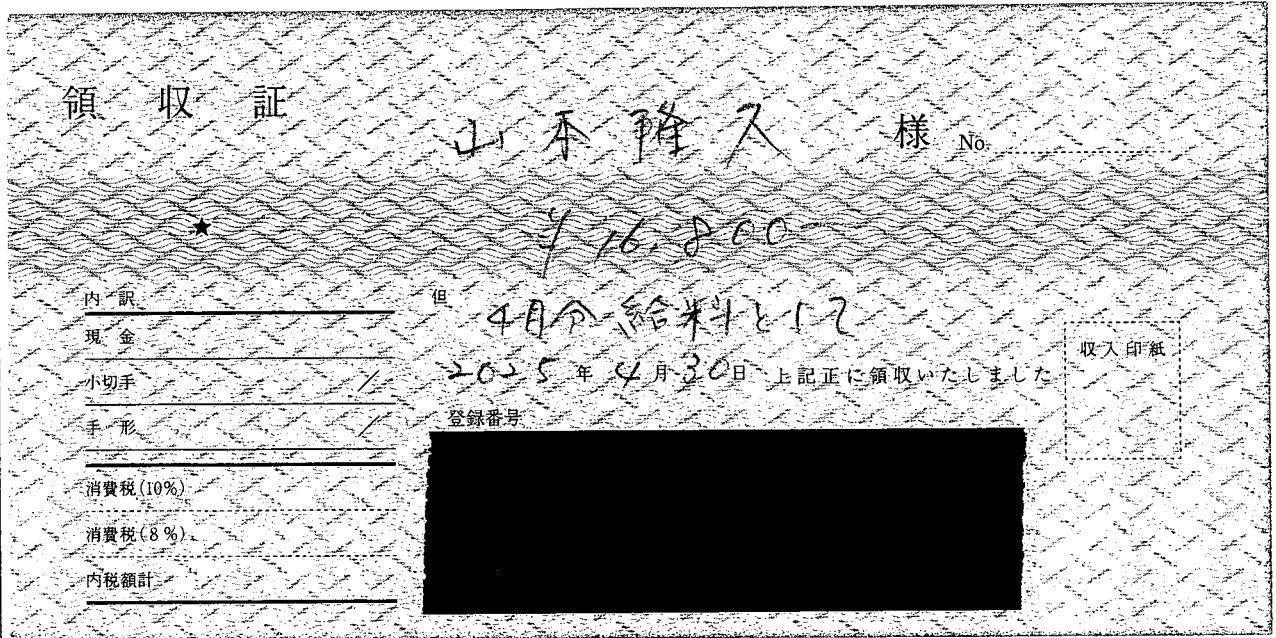 領収証
山本隆久 様 No.
★ ¥16,800-
内訳
現金
小切手 /
手形 /
消費税(10%)
消費税(8%)
内税額計
但 4月分給料として
2025年4月30日 上記正に領収いたしました
登録番号
収入印紙